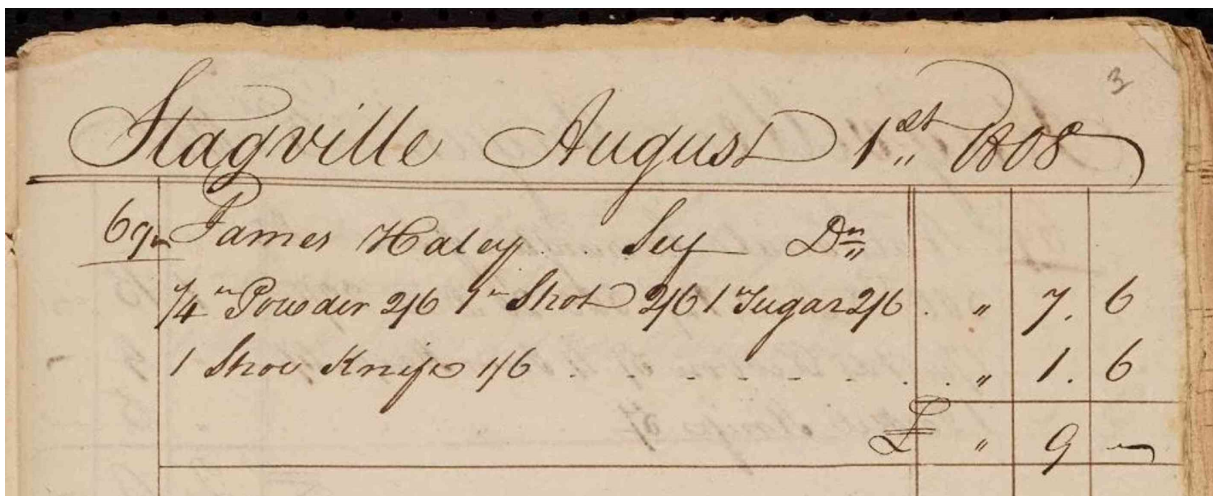 3
Stagville August 1st 1808
James Haley Dr
1/4 Powder 2/6 1 Shot 2/6 1 Sugar 2/6 . " 7. 6
1 Shoe Knife 1/6 . . . . . . " 1. 6
£ " 9 —